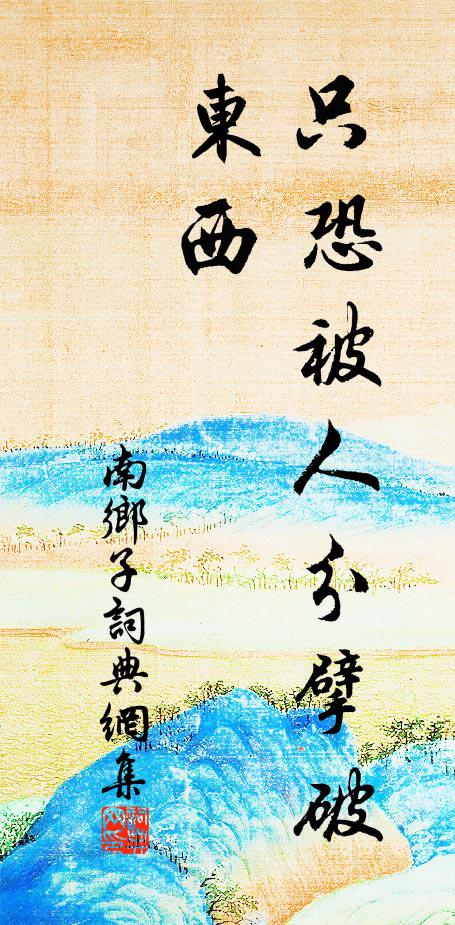 只恐被人分擘破
東西
南鄉子詞典網集